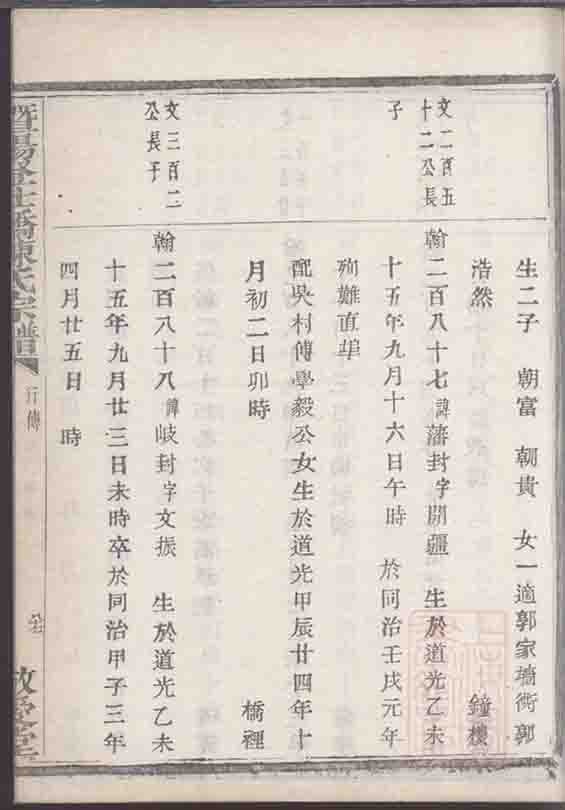 生二子 朝富 朝貴 女一適郭家墻衖郭
浩然 鐘樓
文二百五
十二公長
子
翰二百八十七諱藩封字開疆 生於道光乙未
十五年九月十六日午時 於同治壬戌元年
殉難直埠
配吳村傅學毅公女生於道光甲辰廿四年十
月初二日卯時 橋裡
文三百二
公長子
翰二百八十八諱岐封字文振 生於道光乙未
十五年九月廿三日未時卒於同治甲子三年
四月廿五日 時
暨陽 橋陳氏宗譜 行傳